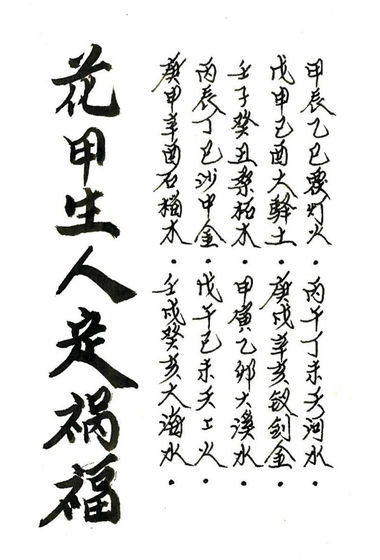 甲辰乙巳覆灯火·丙午丁未天河水·
戊申己酉大驿土·庚戌辛亥钗钏金·
壬子癸丑桑柘木·甲寅乙卯大溪水·
丙辰丁巳沙中金·戊午己未天上火·
庚申辛酉石榴木·壬戌癸亥大海水·
花甲生人定祸福